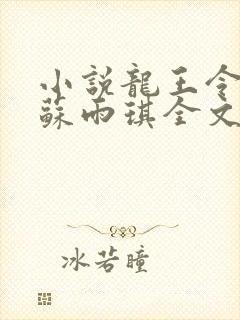 小説龍王令
蘇雨琪全文
冰若瞳